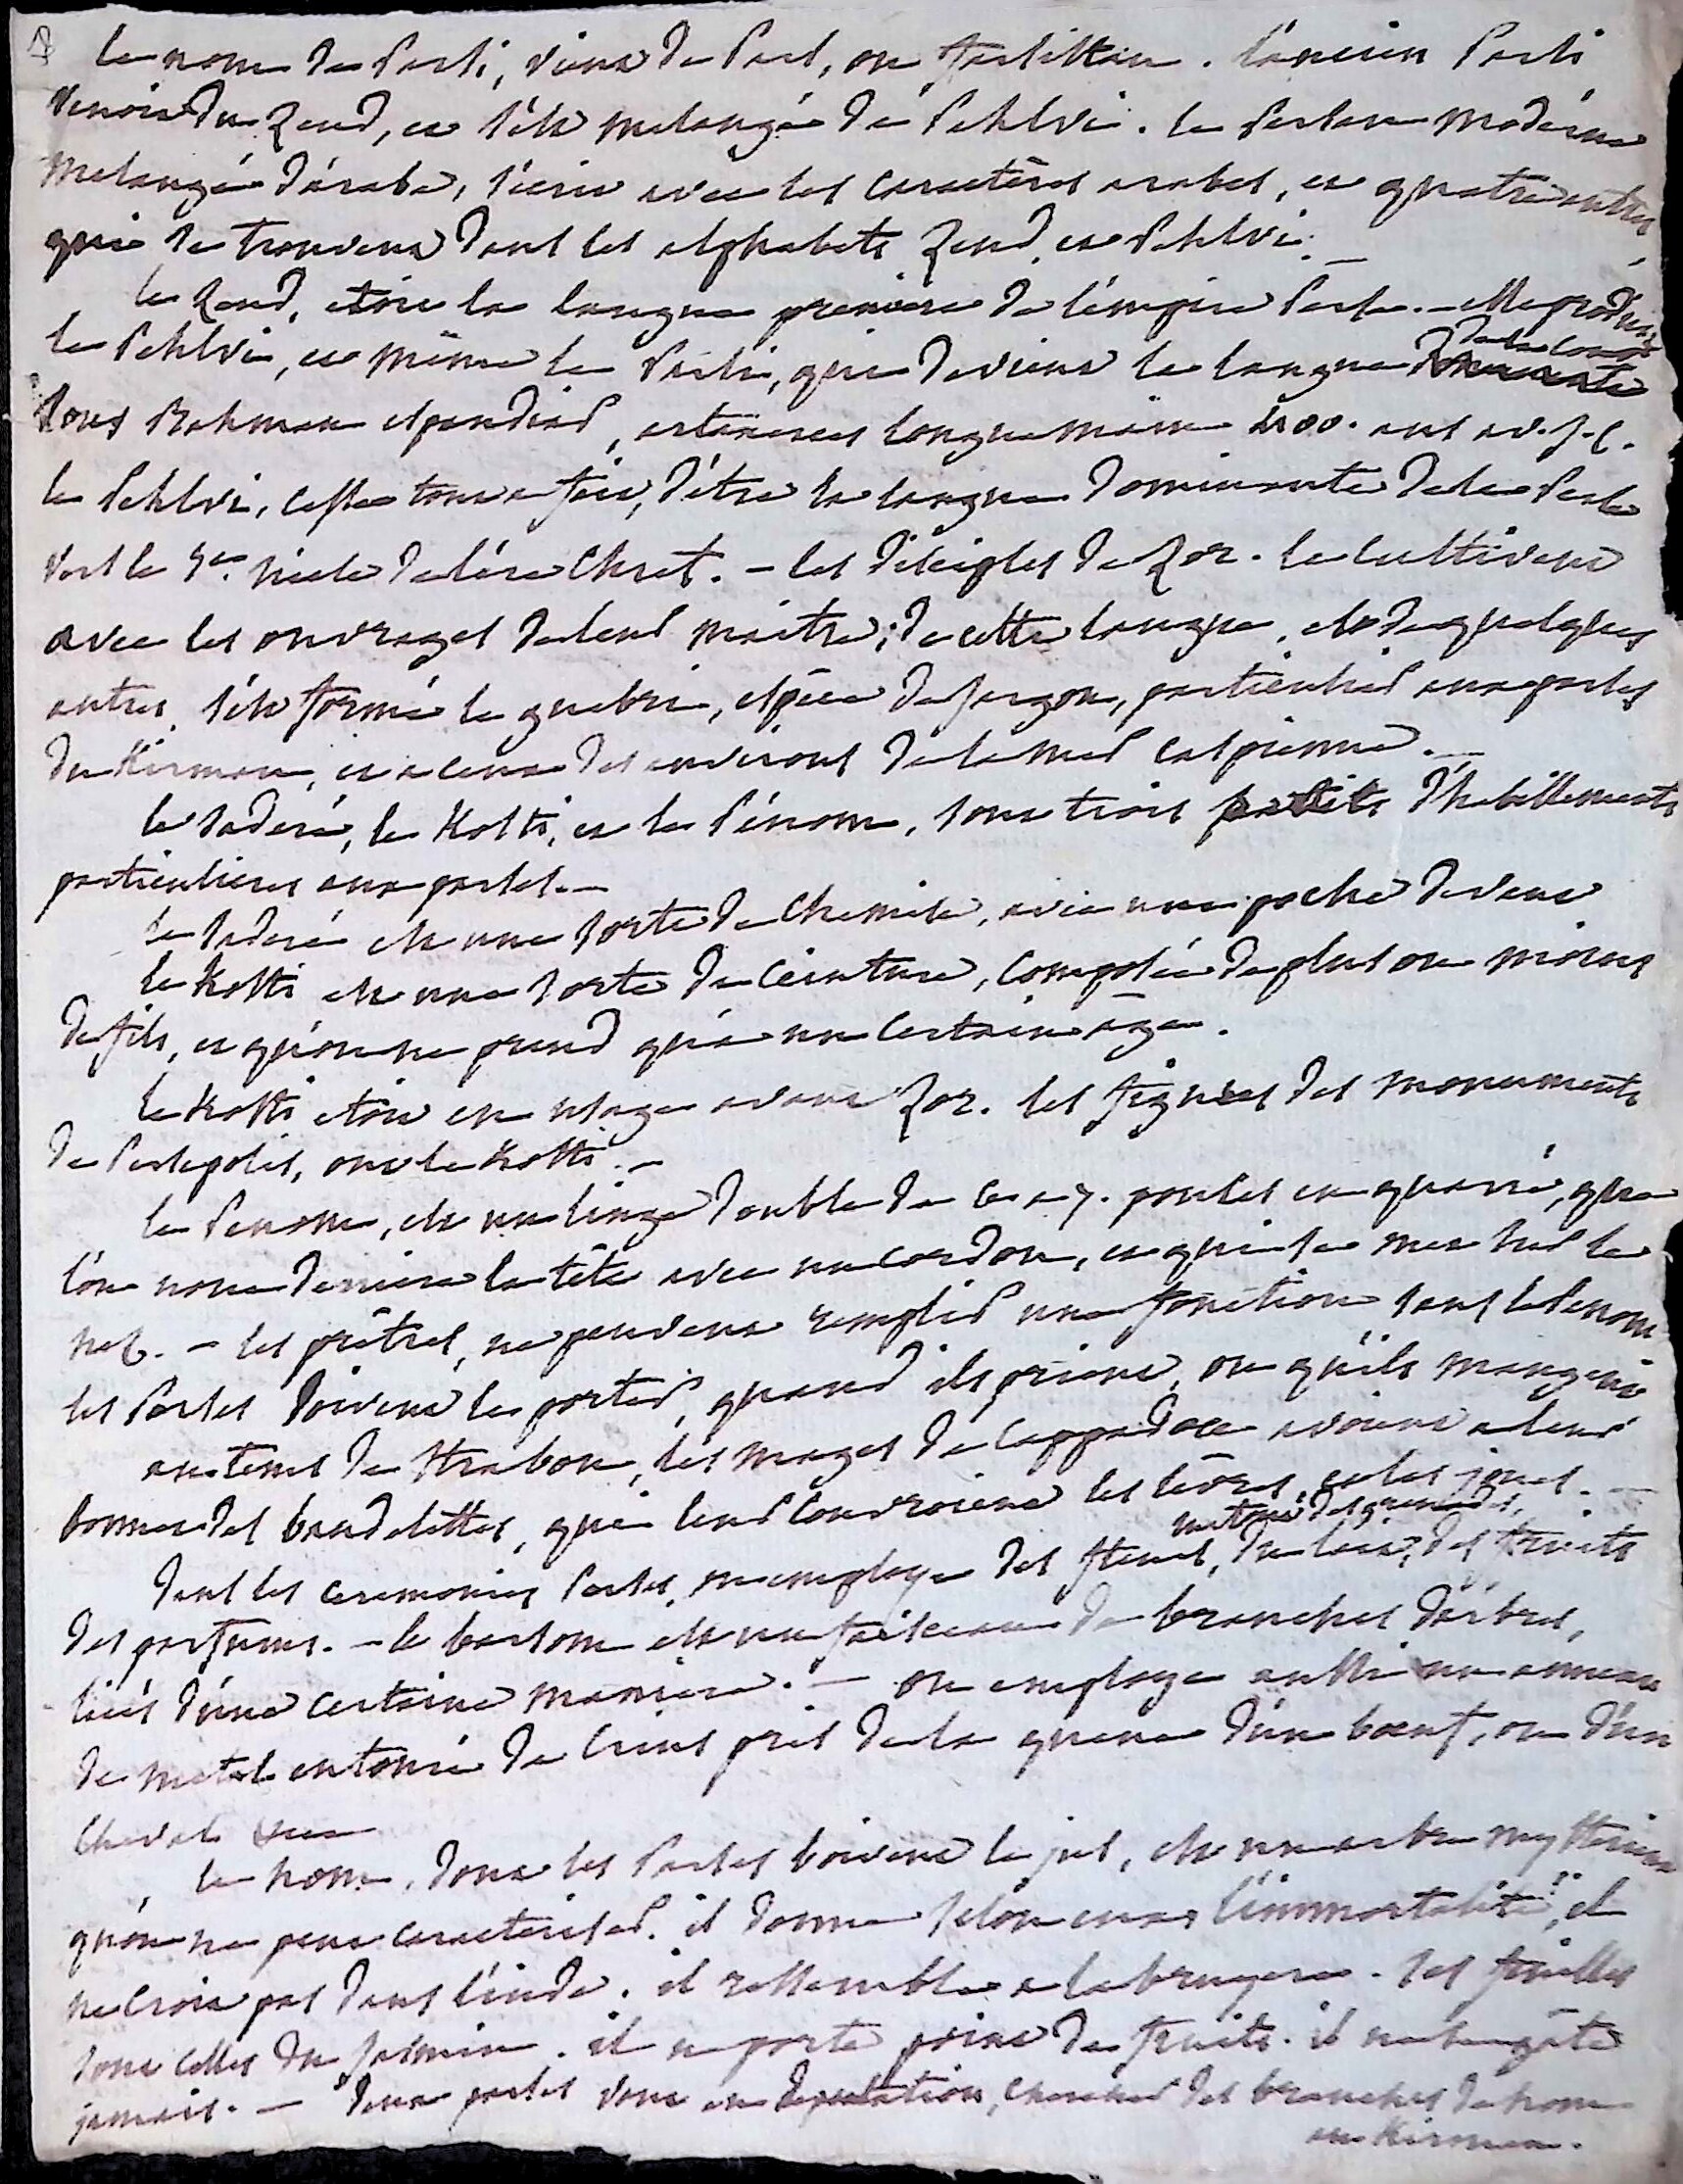 le nom de Parsi, vient de Pars, ou farsistan. l'ancien Parsi
venoit du Zend, et s'est melangé de Pehlvi. le Persan moderne
melangé d'arabe, s'écrit avec les caractères arabes, et quatre autres,
qui se trouvent dans les alphabets Zend, et Pehlvi. —
le Zend, etoit la langue premiere de l'empire Perse. — elle produit
le Pehlvi, et même le Parsi, qui devient la langue de la cour
sous Bahman espendiar, artaxerces longuemain 400. ans av. J.-C.
le Pehlvi, cesse tout a fait, d'être la langue dominante de la Perse
vers le siecle de l'ère Chret. — les disciples de Zor. le cultivent
avec les ouvrages de leur maitre; de cette langue, et de quelques
autres, s'est formé le guebri, espèce de jargon, particulier aux parses
du Kirman, et a ceux des environs de la mer caspienne. —
le saderé, le Kosti, et le Pénom, sont trois d'habillements
particulieres aux parses. —
le saderé est une sorte de chemise, avec une poche devant
le Kosti est une sorte de ceinture, composée de plus ou moins
de fils, et qu'on ne prend qu'a un certain age.
le Kosti etoit en usage avant Zor. les figures des monuments
de Persepolis, ont le Kosti. —
le Penom, est un linge double de 6 a 7. pouces en quarré, que
l'on noue derriere la tête avec un cordon, et qui se met sur le
nez. — les prêtres, ne peuvent remplir une fonction sans le Penom
les Parses doivent le porter, quand ils prient, ou qu'ils mangent
au tems de Strabon, les mages de Cappadoce avoient a leur
bonnet des bandelettes, qui leur couvroient les lèvres, et les joues. —
dans les ceremonies Parses, on employe des fleurs, du lait, des fruits
surtout des grenades,
des parfums. — le barsom est un faisceau de branches d'arbres,
liées d'une certaine maniere. — on employe aussi un anneau
de metal entouré de crins pris de la queue d'un bœuf, ou d'un
cheval
le hom, dont les Parses boivent le jus, est un arbre mysterieux
qu'on ne peut caracteriser. il donne selon eux l'immortalité, il
ne croit pas dans l'inde. il ressemble a la bruyere. ses feuilles
sont celles du jasmin. il ne porte point de fruits. il ne se gâte
jamais. — deux parses vont en deputation, chercher des branches de hom
au Kirman.